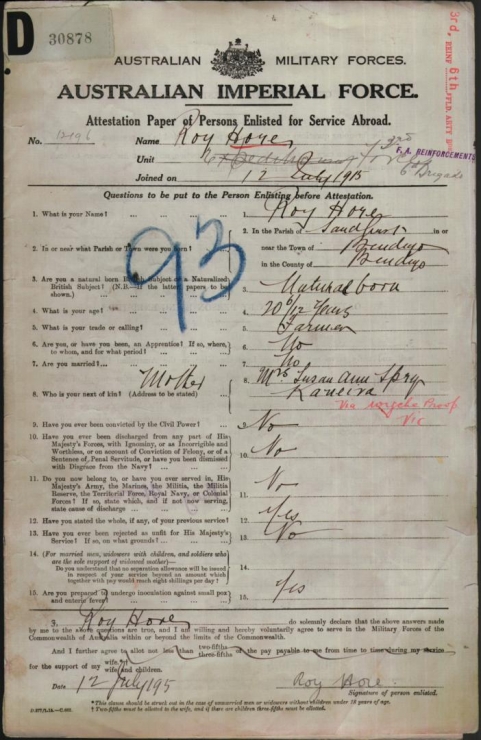 D 30878
AUSTRALIAN MILITARY FORCES.
AUSTRALIAN IMPERIAL FORCE.
Attestation Paper of Persons Enlisted for Service Abroad.
No. Name Roy Hore
Unit
F.A. REINFORCEMENTS
6th Brigade
Joined on 12 July 1915
Questions to be put to the Person Enlisting before Attestation.
1. What is your Name? 1. Roy Hore
2. In or near what Parish or Town were you born? 2. In the Parish of Sandhurst in or
near the Town of Bendigo
in the County of Bendigo
3. Are you a natural born British Subject or a Naturalised
British Subject? (N.B.—If the latter, papers to be
shown.) 3. Natural born
4. What is your age? 4. 20 6/12 Years
5. What is your trade or calling? 5. Farmer
6. Are you, or have you been, an Apprentice? If so, where,
to whom, and for what period? 6. No
7. Are you married? 7. No
Mother
8. Who is your next of kin? (Address to be stated) 8. Mrs Susan Ann Spry
Kaneira
Vic
9. Have you ever been convicted by the Civil Power? 9. No
10. Have you ever been discharged from any part of His
Majesty's Forces, with Ignominy, or as Incorrigible and
Worthless, or on account of Conviction of Felony, or of a
Sentence of Penal Servitude, or have you been dismissed
with Disgrace from the Navy? 10. No
11. Do you now belong to, or have you ever served in, His
Majesty's Army, the Marines, the Militia, the Militia
Reserve, the Territorial Force, Royal Navy, or Colonial
Forces? If so, state which, and if not now serving,
state cause of discharge 11. No
12. Have you stated the whole, if any, of your previous service? 12. Yes
13. Have you ever been rejected as unfit for His Majesty's
Service? If so, on what grounds? 13. No
14. (For married men, widowers with children, and soldiers who
are the sole support of widowed mother—
Do you understand that no separation allowance will be issued
in respect of your service beyond an amount which
together with pay would reach eight shillings per day? 14.
15. Are you prepared to undergo inoculation against small pox
and enteric fever? 15. Yes
93
I, Roy Hore do solemnly declare that the above answers made
by me to the above questions are true, and I am willing and hereby voluntarily agree to serve in the Military Forces of the
Commonwealth of Australia within or beyond the limits of the Commonwealth.
And I further agree to allot not less than two-fifths
three-fifths of the pay payable to me from time to time during my service
for the support of my wife.
wife and children.
Date 12 July 195 Roy Hore.
Signature of person enlisted.
* This clause should be struck out in the case of unmarried men or widowers without children under 18 years of age.
† Two-fifths must be allotted to the wife, and if there are children three-fifths must be allotted.